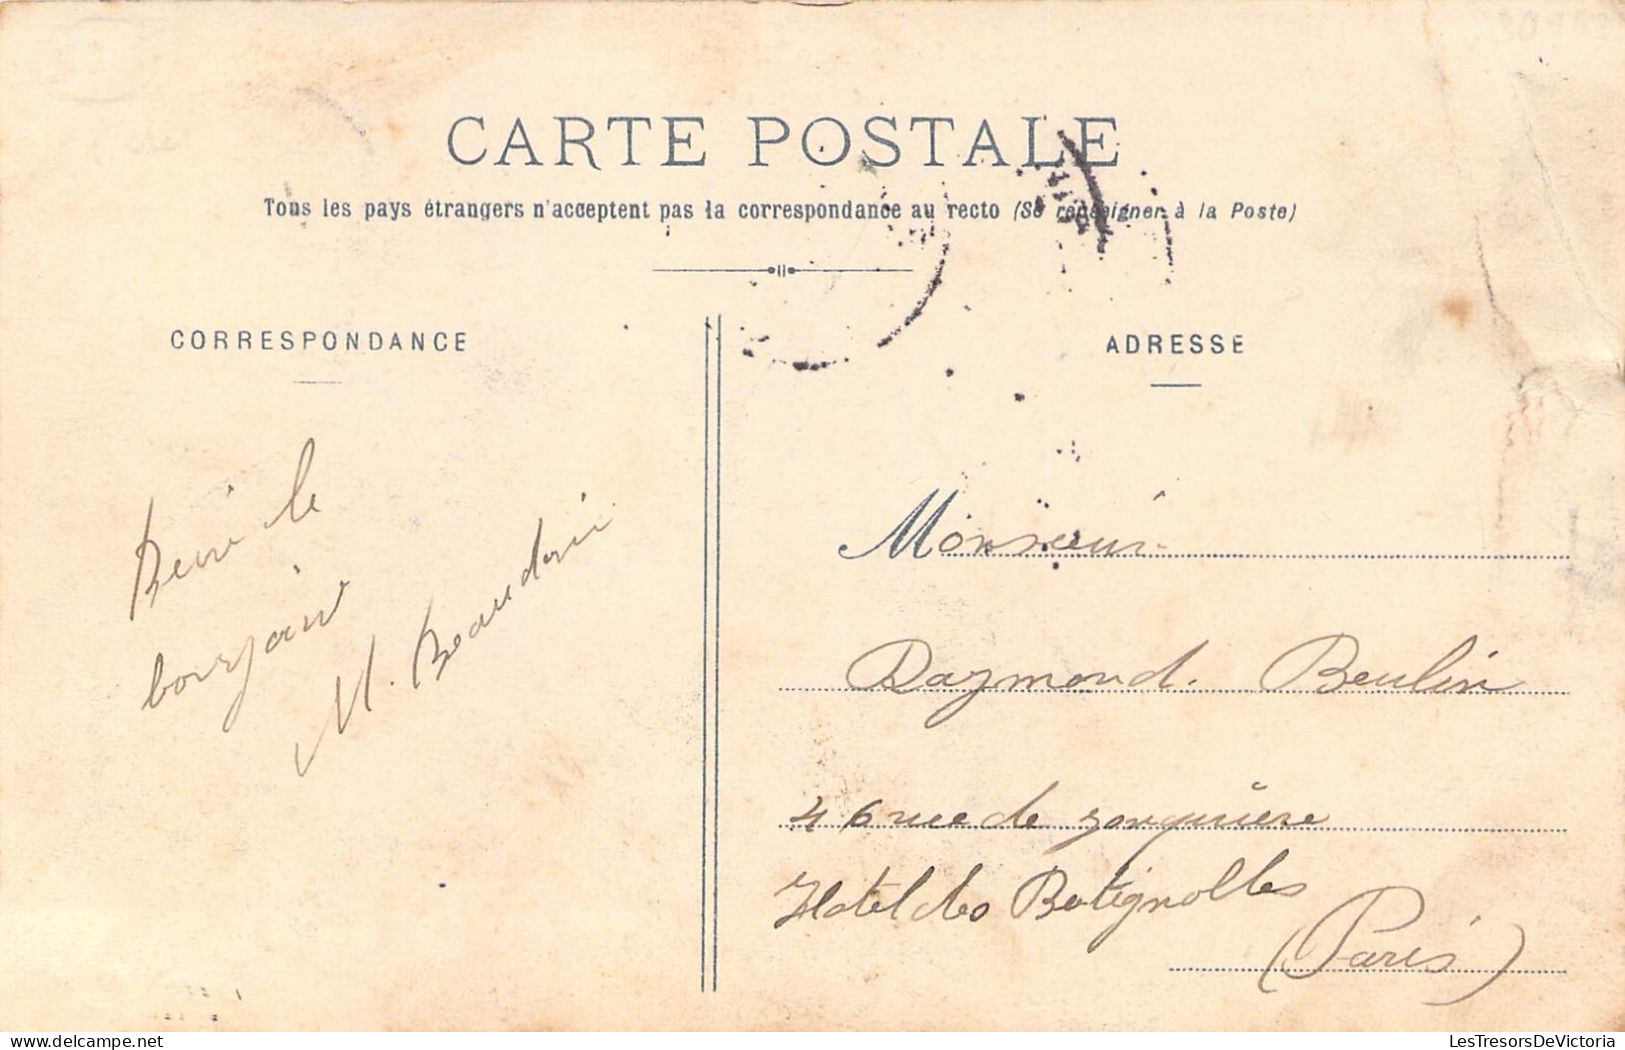 CARTE POSTALE
Tous les pays étrangers n'acceptent pas la correspondance au recto (Se renseigner à la Poste)
CORRESPONDANCE
le
M. Beaudrie
ADRESSE
Monsieur
Raymond. Beulin
46 rue de
Hotel des Batignolles
(Paris)
LesTresorsDeVictoria.com